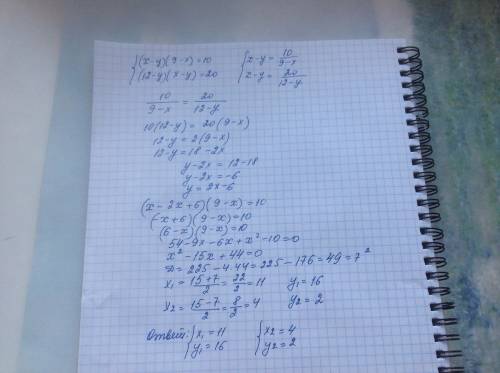 {(x-y)(9-x)=10   {x-y = 10/(9-x)
{(12-y)(x-y)=20   {x-y = 20/(12-y)
10/(9-x) = 20/(12-y)
10(12-y) = 20(9-x)
12-y = 2(9-x)
12-y = 18-2x
y-2x = 12-18
y-2x = -6
y = 2x-6
(x-2x+6)(9-x)=10
(-x+6)(9-x)=10
(6-x)(9-x)=10
54-9x-6x+x²-10=0
x²-15x+44=0
D=225-4·44=225-176=49=7²
x₁ = (15+7)/2 = 22/2 = 11   y₁=16
x₂ = (15-7)/2 = 8/2 = 4   y₂=2
Ответ: {x₁=11   {x₂=4
{y₁=16   {y₂=2